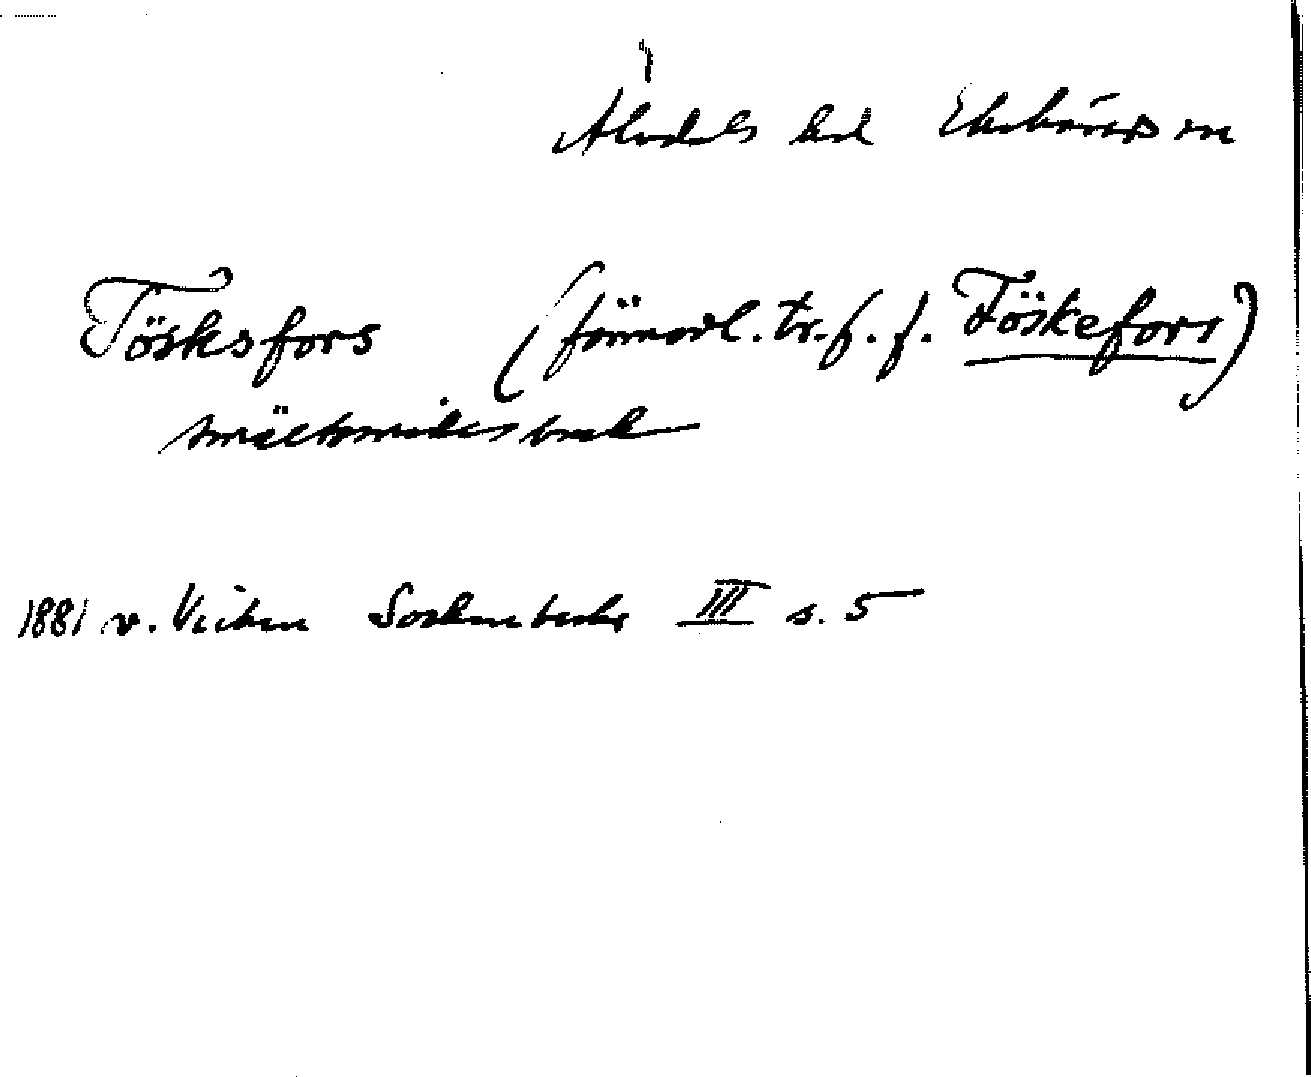 Ahrdals hd Ekebörss sn
Tösksfors (förmodl. tr.f. f. Töskefors)
smältsmidesbruk
1881 v. Vicken Sockenbeskr III s. 5